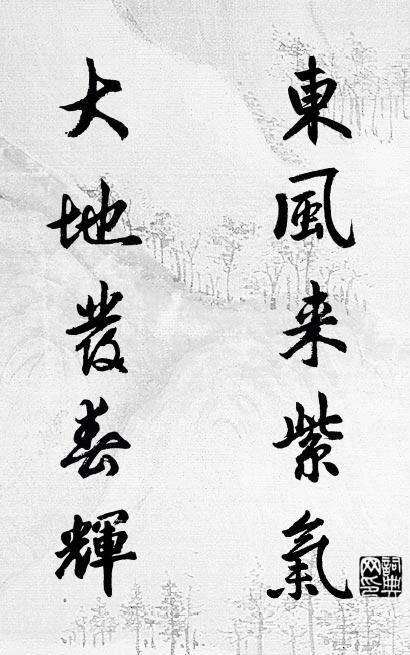 東風来紫氣
大地發春輝
詞典网印